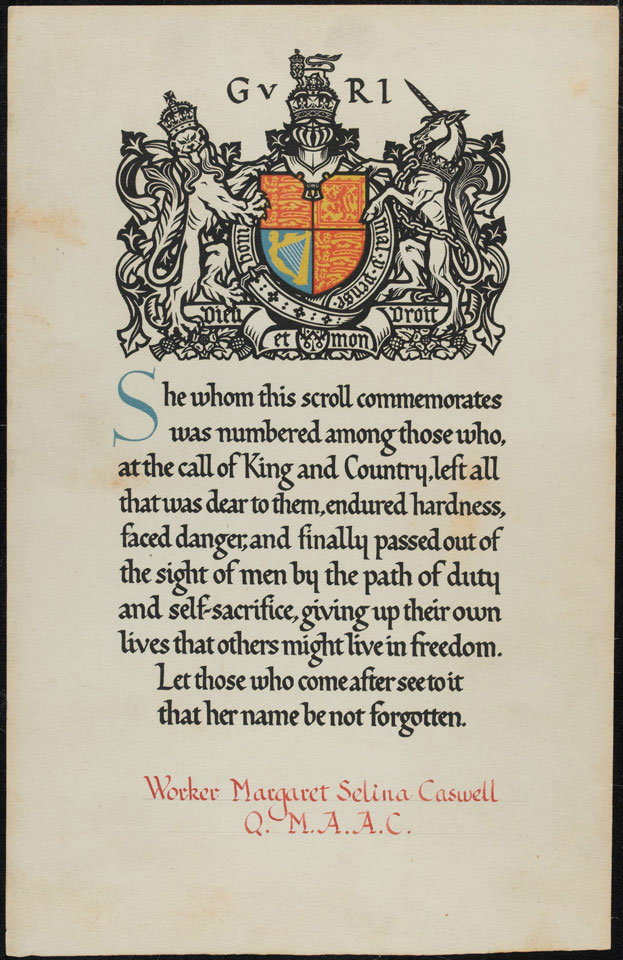 GV RI
Dieu et mon Droit
She whom this scroll commemorates
was numbered among those who,
at the call of King and Country, left all
that was dear to them, endured hardness,
faced danger, and finally passed out of
the sight of men by the path of duty
and self-sacrifice, giving up their own
lives that others might live in freedom.
Let those who come after see to it
that her name be not forgotten.
Worker Margaret Selina Caswell
Q. M.A.A.C.